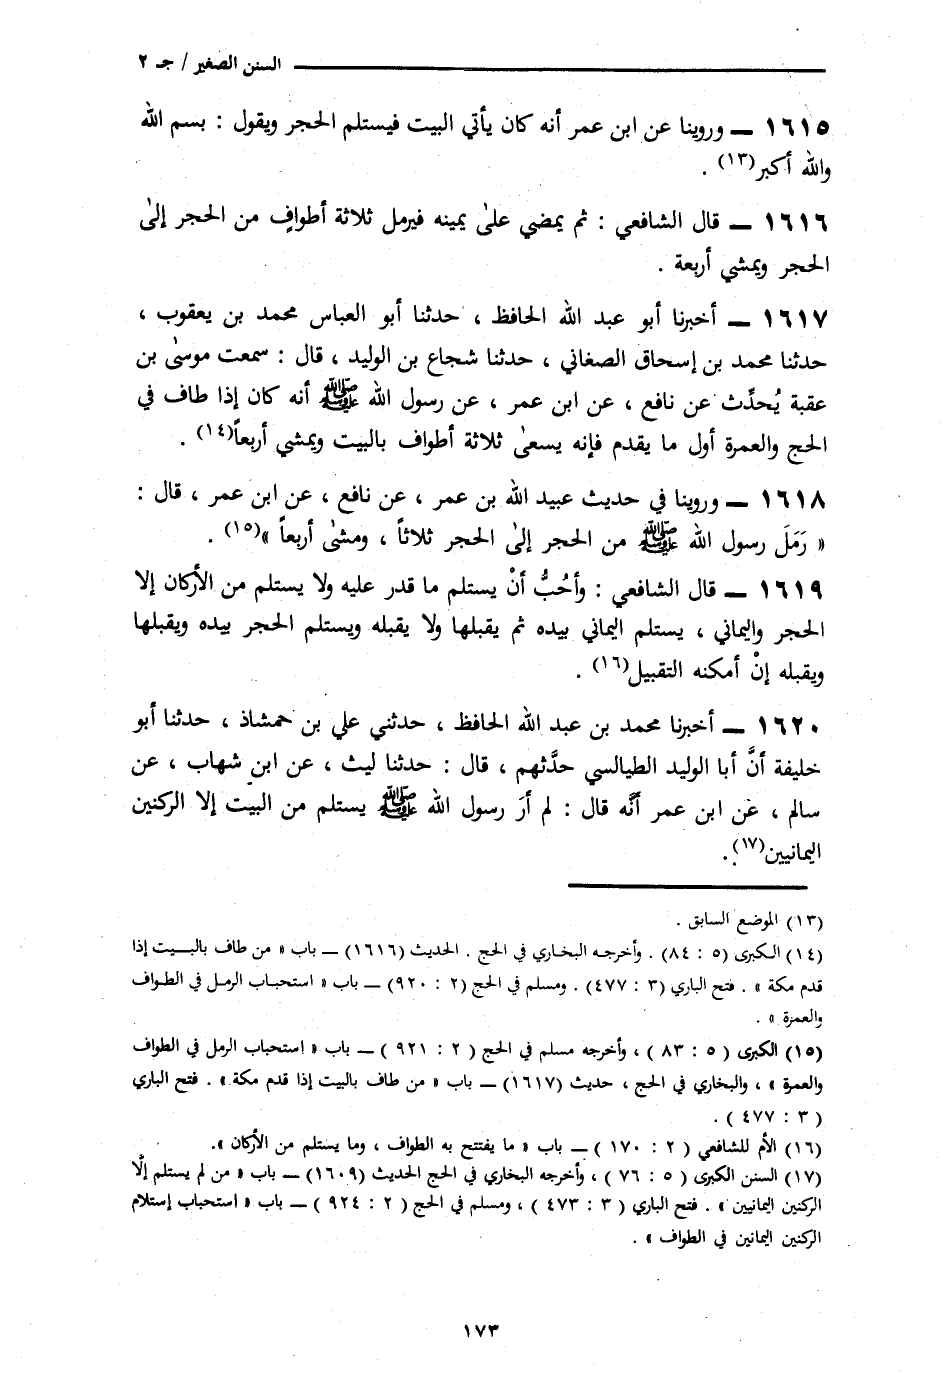 السنن الصغير / جـ ٢
١٦١٥ ــ وروينا عن ابن عمر أنه كان يأتي البيت فيستلم الحجر ويقول : بسم الله
والله أكبر(١٣) .
١٦١٦ ــ قال الشافعي : ثم يمضي علىٰ يمينه فيرمل ثلاثة أطوافٍ من الحجر إلىٰ
الحجر ويمشي أربعة .
١٦١٧ ــ أخبرنا أبو عبد الله الحافظ ، حدثنا أبو العباس محمد بن يعقوب ،
حدثنا محمد بن إسحاق الصغاني ، حدثنا شجاع بن الوليد ، قال : سمعت موسىٰ بن
عقبة يُحدِّث عن نافع ، عن ابن عمر ، عن رسول الله ﷺ أنه كان إذا طاف في
الحج والعمرة أول ما يقدم فإنه يسعىٰ ثلاثة أطواف بالبيت ويمشي أربعاً(١٤) .
١٦١٨ ــ وروينا في حديث عبيد الله بن عمر ، عن نافع ، عن ابن عمر ، قال :
« رَمَلَ رسول الله ﷺ من الحجر إلىٰ الحجر ثلاثاً ، ومشىٰ أربعاً »(١٥) .
١٦١٩ ــ قال الشافعي : وأحُبُّ أنْ يستلم ما قدر عليه ولا يستلم من الأركان إلا
الحجر واليماني ، يستلم اليماني بيده ثم يقبلها ولا يقبله ويستلم الحجر بيده ويقبلها
ويقبله إنْ أمكنه التقبيل(١٦) .
١٦٢٠ ــ أخبرنا محمد بن عبد الله الحافظ ، حدثني علي بن حمشاذ ، حدثنا أبو
خليفة أنَّ أبا الوليد الطيالسي حدَّثهم ، قال : حدثنا ليث ، عن ابن شهاب ، عن
سالم ، عن ابن عمر أنَّه قال : لم أرَ رسول الله ﷺ يستلم من البيت إلا الركنين
اليمانيين(١٧) .
(١٣) الموضع السابق .
(١٤) الكبرى (٥ : ٨٤) . وأخرجه البخاري في الحج . الحديث (١٦١٦) ــ باب « من طاف بالبيت إذا
قدم مكة » . فتح الباري (٣ : ٤٧٧) . ومسلم في الحج (٢ : ٩٢٠) ــ باب « استحباب الرمل في الطواف
والعمرة » .
(١٥) الكبرى ( ٥ : ٨٣ ) ، وأخرجه مسلم في الحج ( ٢ : ٩٢١ ) ــ باب « استحباب الرمل في الطواف
والعمرة » ، والبخاري في الحج ، حديث (١٦١٧) ــ باب « من طاف بالبيت إذا قدم مكة » . فتح الباري
( ٣ : ٤٧٧ ) .
(١٦) الأم للشافعي ( ٢ : ١٧٠ ) ــ باب « ما يفتتح به الطواف ، وما يستلم من الأركان ».
(١٧) السنن الكبرى ( ٥ : ٧٦ ) ، وأخرجه البخاري في الحج الحديث (١٦٠٩) ــ باب « من لم يستلم إلَّا
الركنين اليمانيين » . فتح الباري ( ٣ : ٤٧٣ ) ، ومسلم في الحج ( ٢ : ٩٢٤ ) ــ باب « استحباب إستلام
الركنين اليمانين في الطواف » .
١٧٣